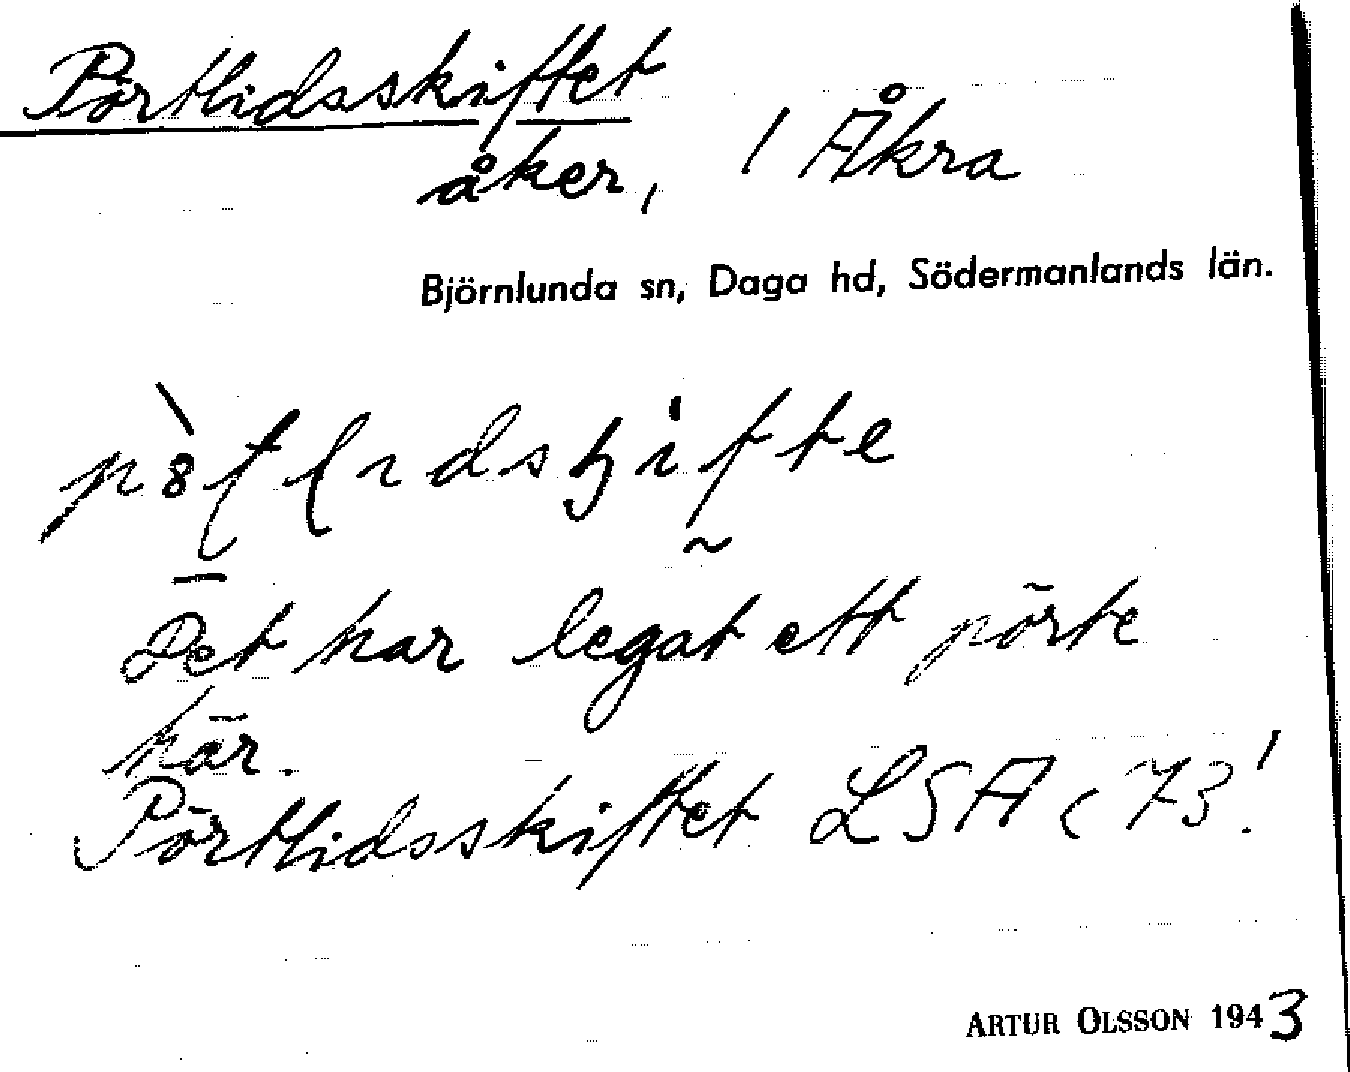 Pörtlidsskiftet
åker, 1 Åkra
Björnlunda sn, Daga hd, Södermanlands län.
Det har legat ett pörte
här.
Pörtlidsskiftet LSA c 73!
ARTUR OLSSON 1943